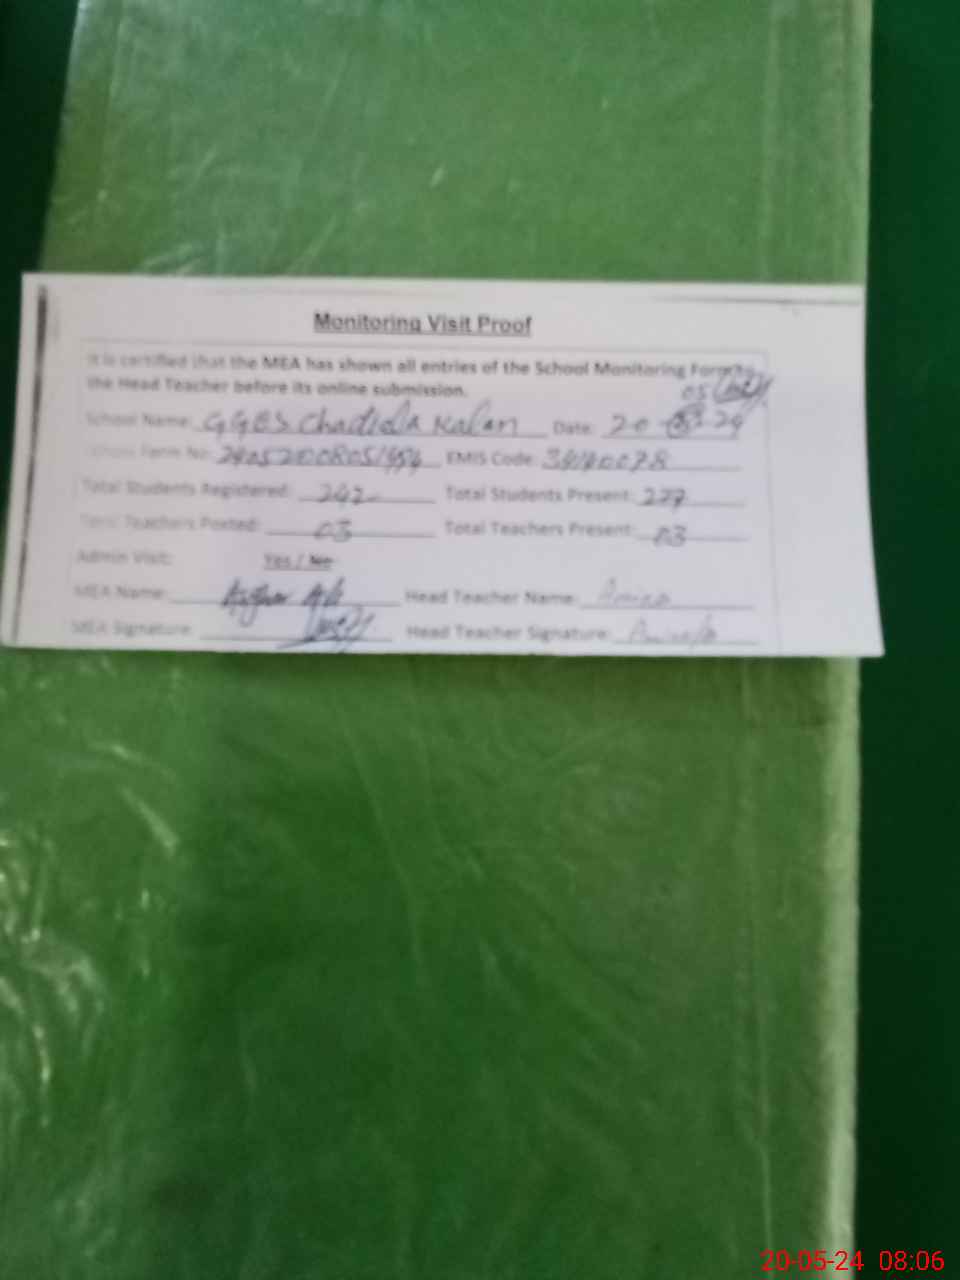 Monitoring Visit Proof
It is certified that the MEA has shown all entries of the School Monitoring Form to
the Head Teacher before its online submission.
05
School Name: GGES Chadiala Kalan Date: 20 24
Form No: EMIS Code:
Total Students Registered: 242 Total Students Present: 227
Total Teachers Posted: 03 Total Teachers Present: 03
Admin Visit: Yes / No
MEA Name: Asghar Ali Head Teacher Name: Amina
MEA Signature: Head Teacher Signature:
20-05-24 08:06